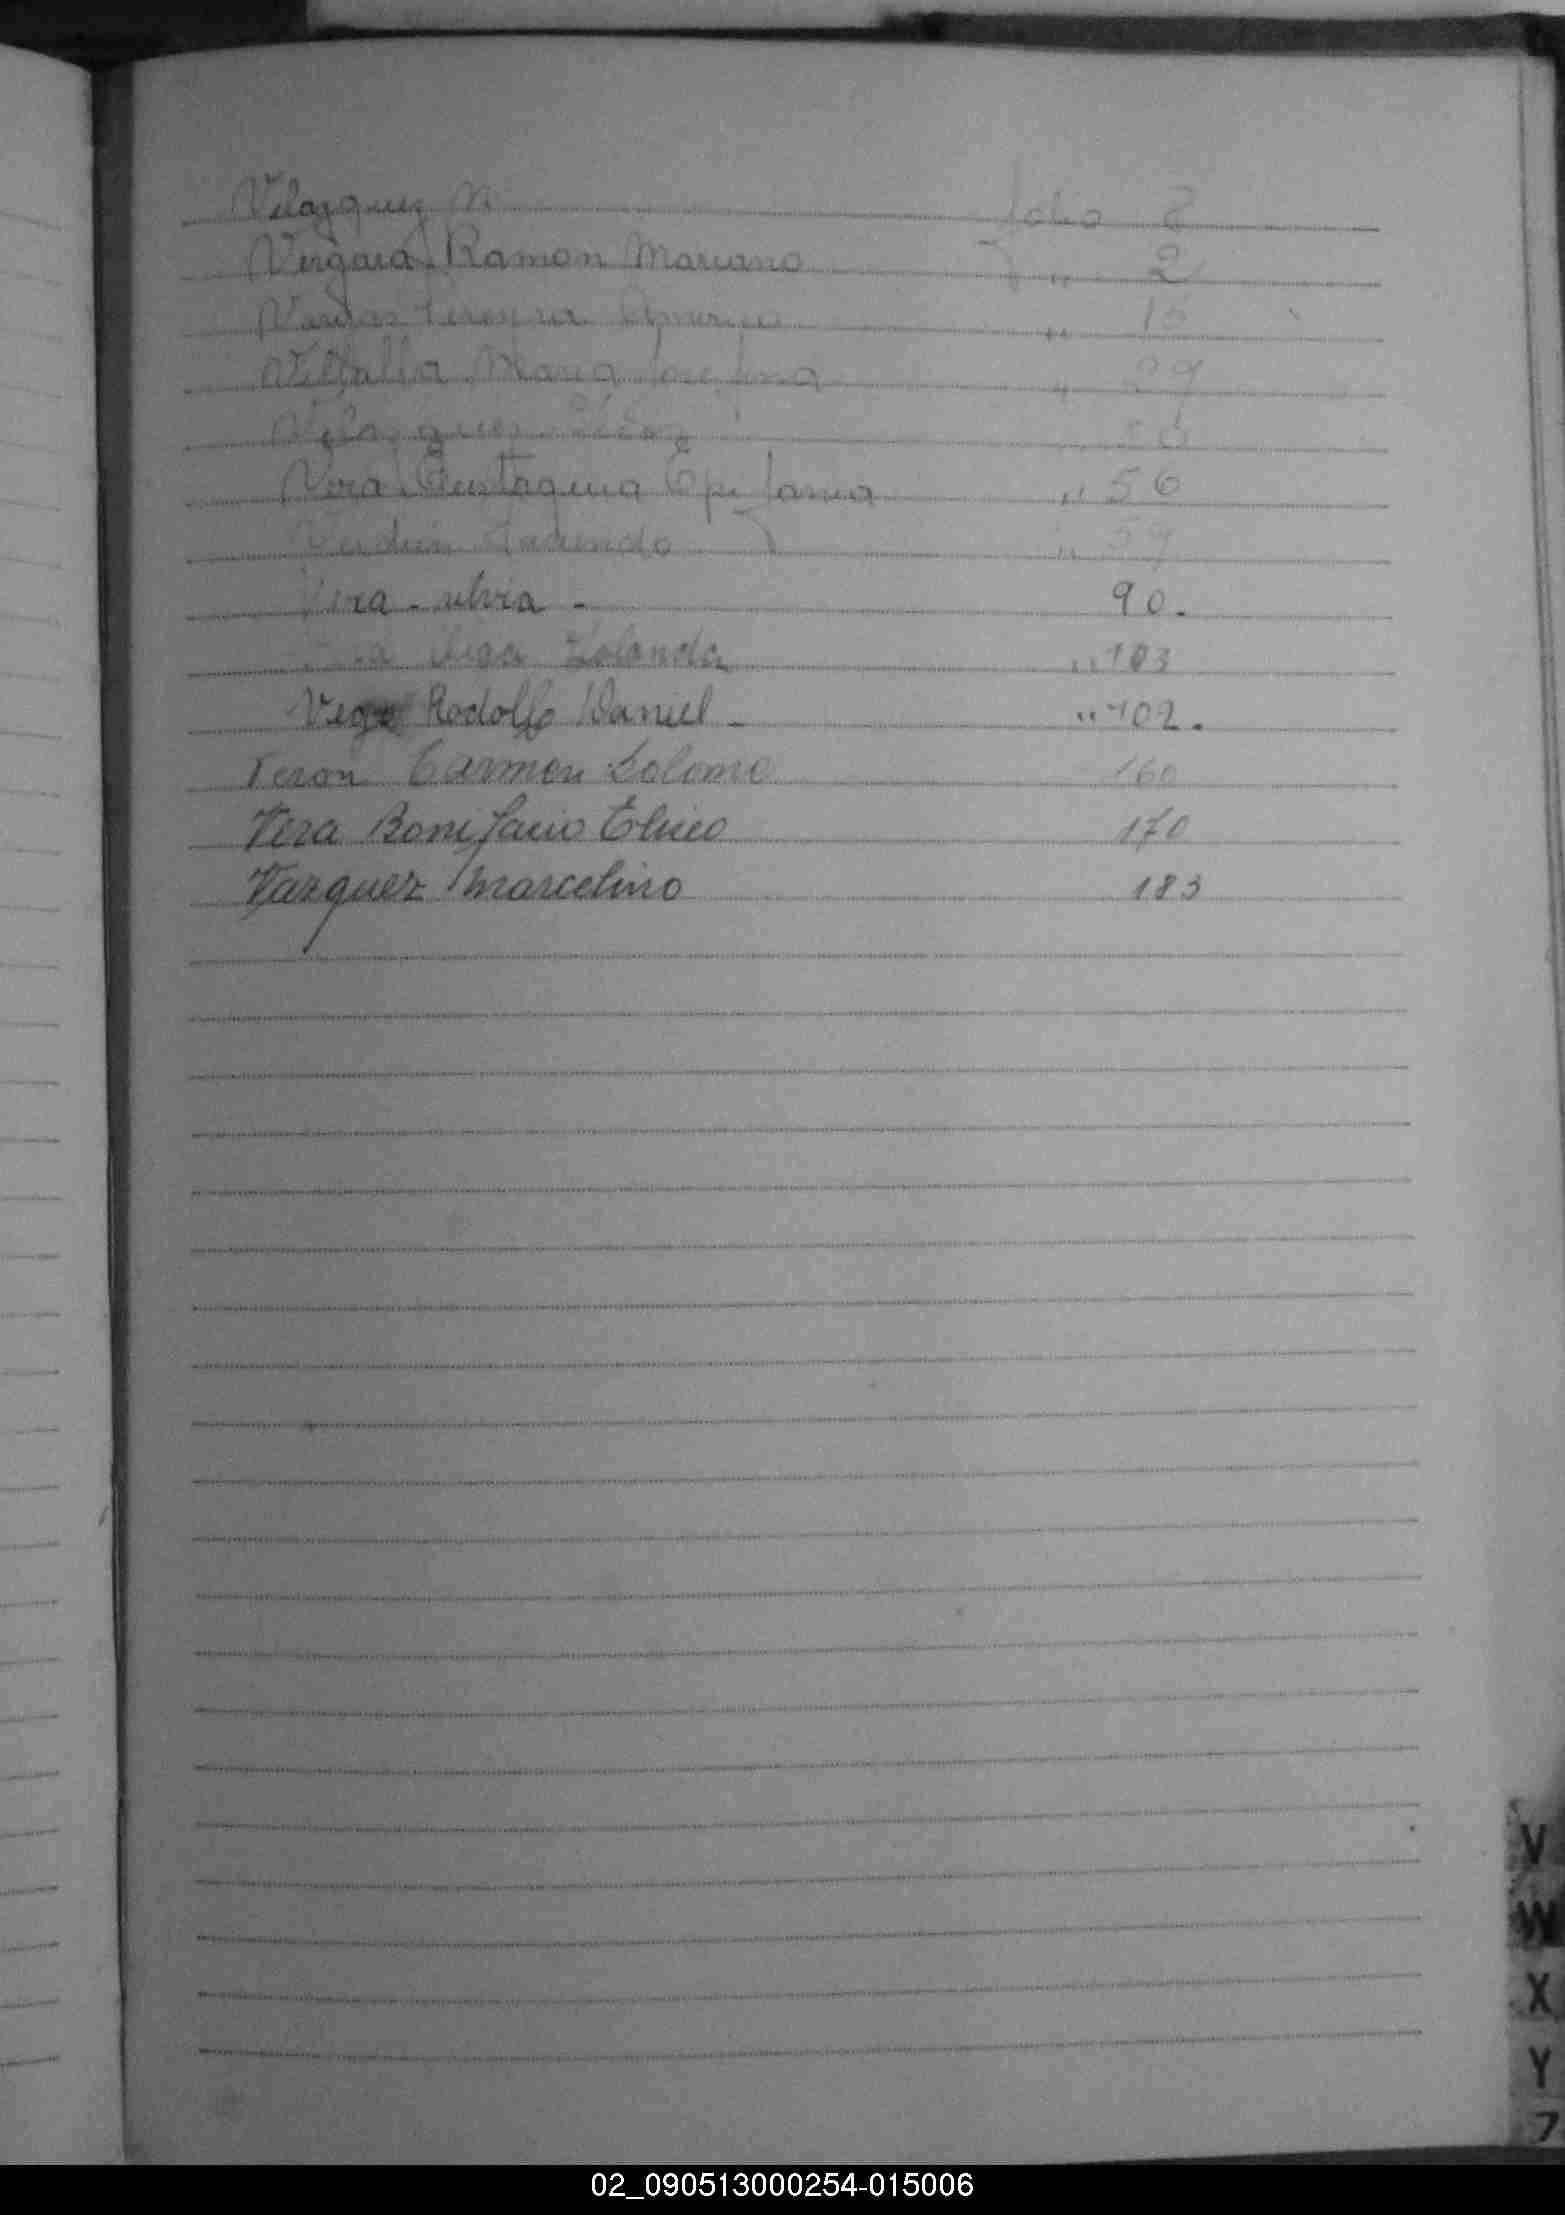 Velazquez N folio 2
Vergara Ramon Mariano " 2
Vargas Ferreyra " 15
Villalla Maria Josefina " 29
Velasquez
Vera Eustaquia Epifania " 56
Verdun Facundo " 59
Vera - silvia - 90.
Yolanda " 103
Vega Rodolfo Daniel - " 102.
Veron Carmen Solome 160
Vera Bonifacio Eliseo 170
Vazquez Marcelino 183
V
W
X
Y
Z
02_090513000254-015006